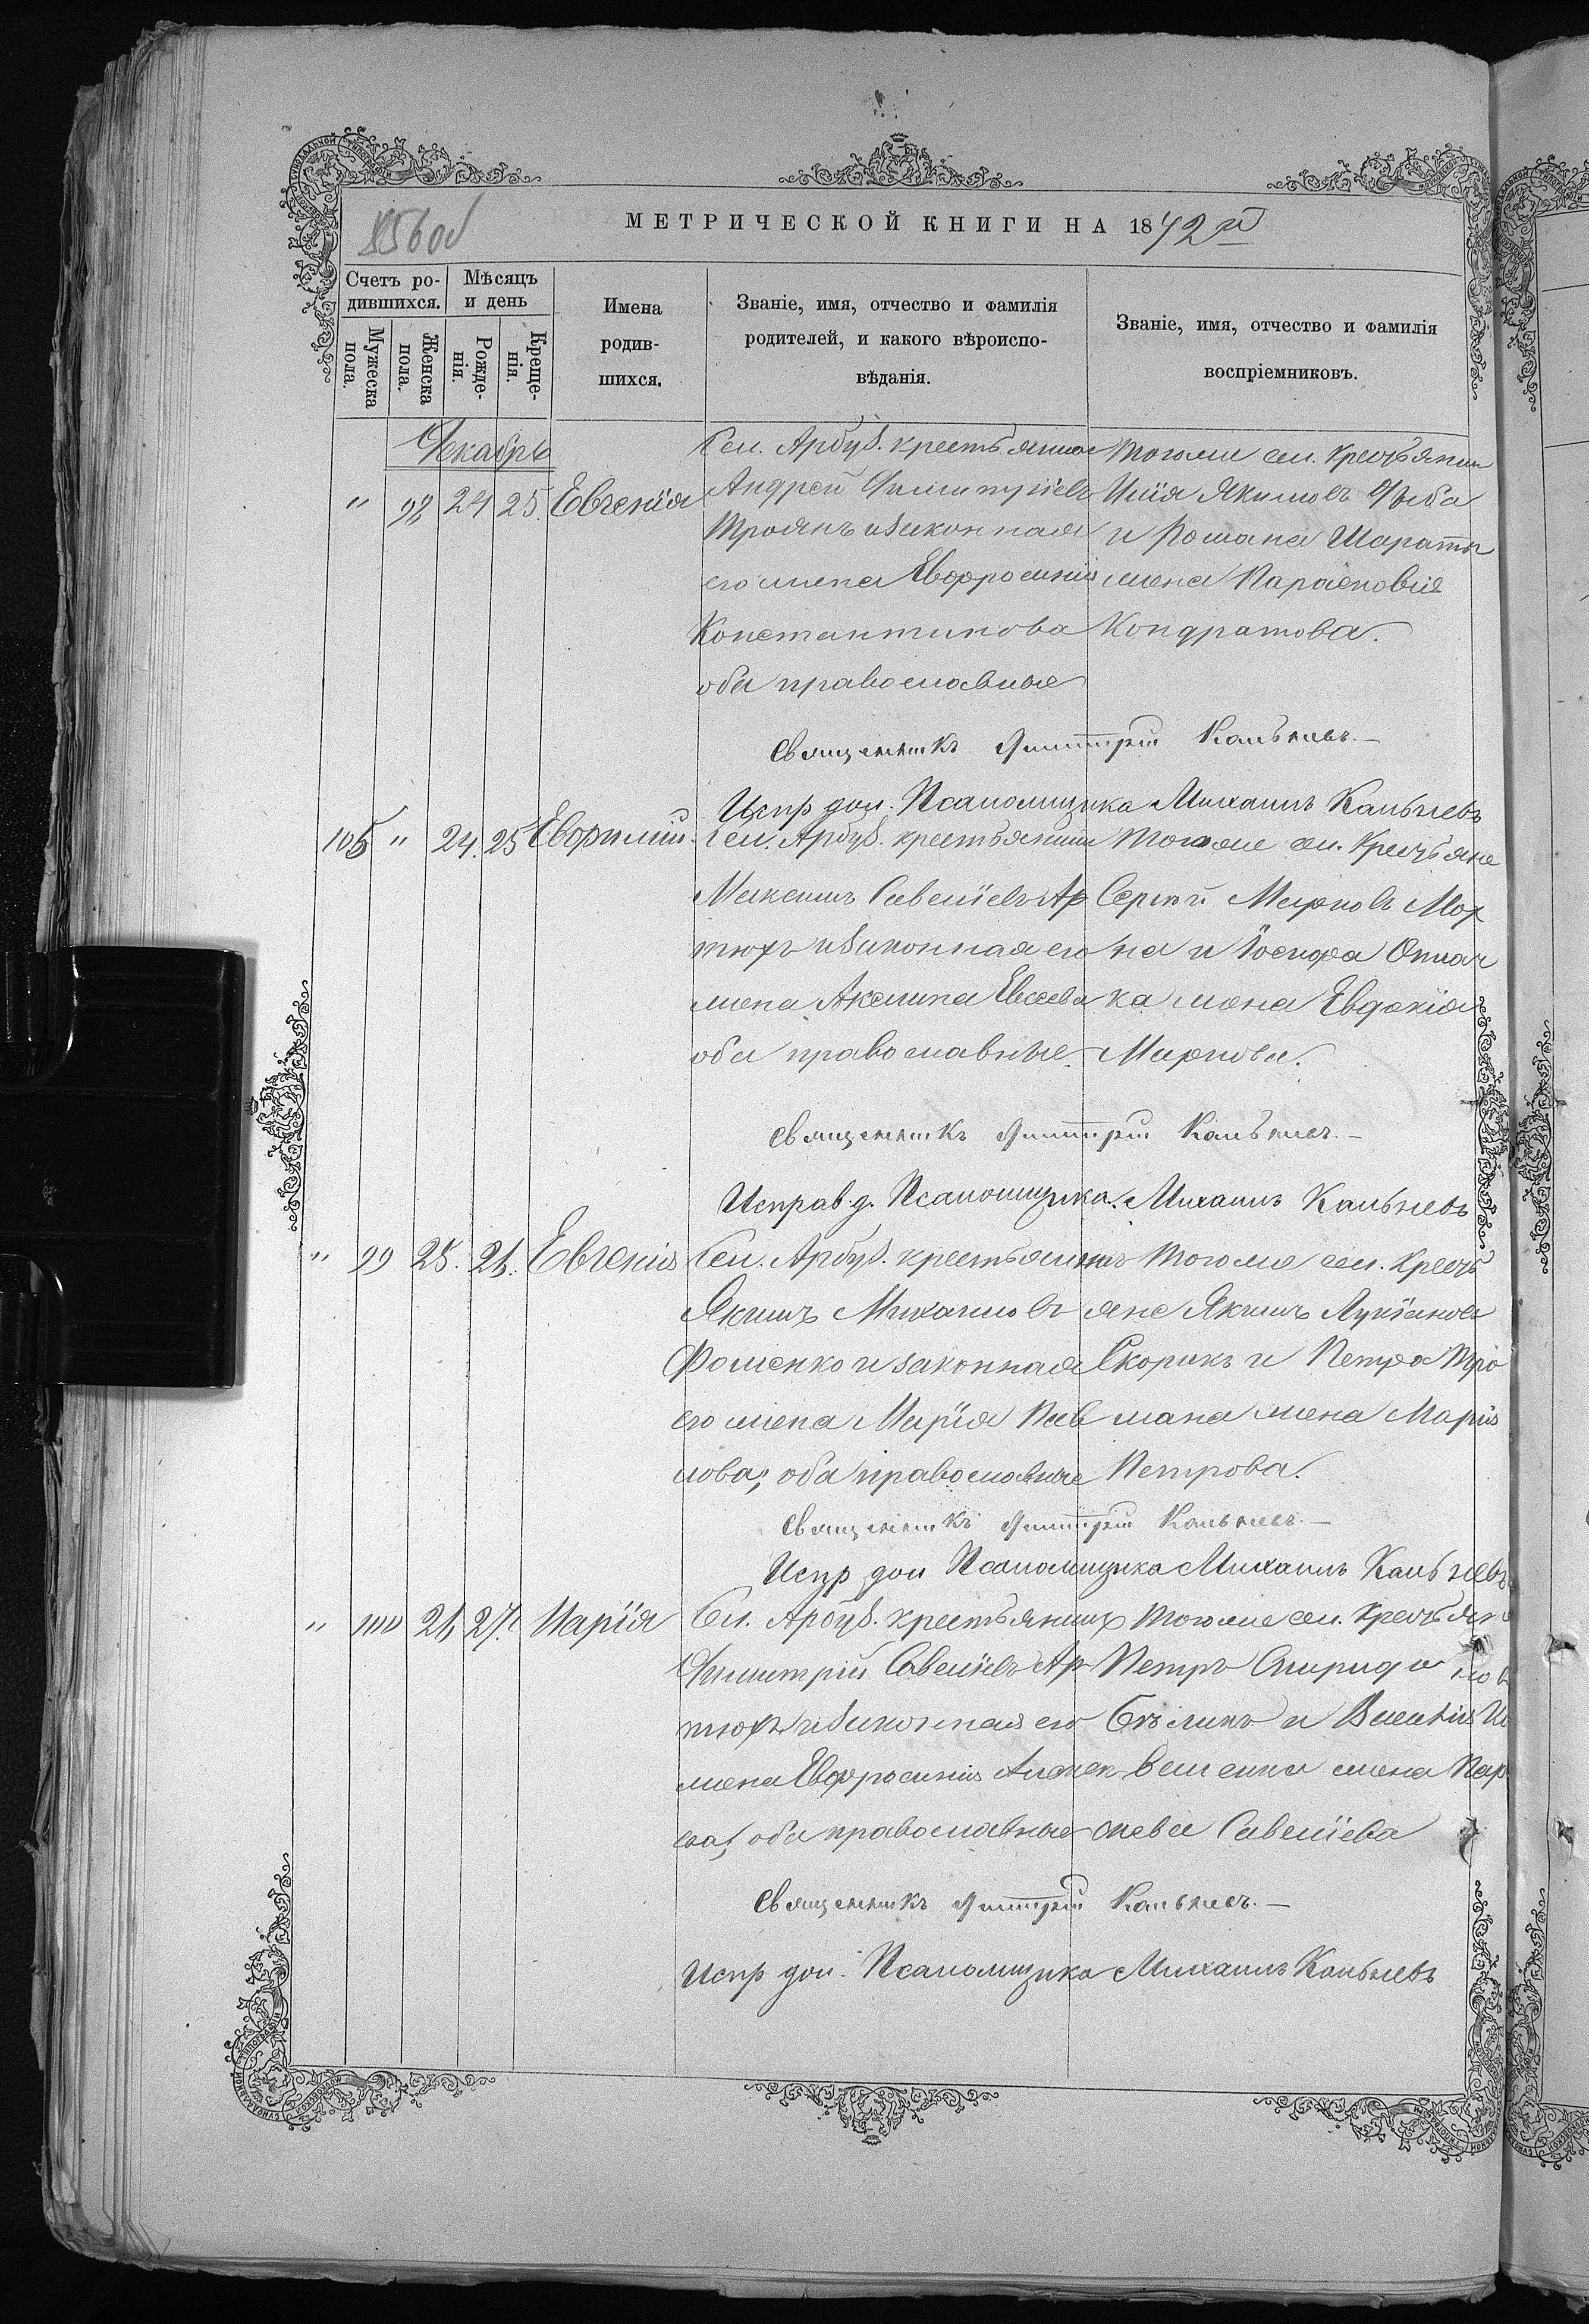 МЕТРИЧЕСКОЙ КНИГИ НА 1872й
Счетъ ро-
дившихся.
Мѣсяцъ
и день
Мужеска
пола.
Женска
пола.
Рожде-
нія.
Креще-
нія.
Имена
родив-
шихся.
Званіе, имя, отчество и фамилія
родителей, и какого вѣроиспо-
вѣданія.
Званіе, имя, отчество и фамилія
воспріемниковъ.
Декабрь
" 98 24 25. Евгенія
Сел. Арбуз. крестьянинъ
Андрей Димитріевъ
Троянъ и законная
его жена Евфросинія
Константинова
оба православные
тогоже сел. крестьянин
Илія Якимовъ
и Романа
жена Парасковія
Кондратова.
Священникъ Димитрій Кальневъ.—
Испр дол. Псаломщика Михаилъ Кальневъ
105 " 24. 25 Евфимій.
Сел. Арбуз. крестьянинъ
Максимъ Савеліевъ Ар
тюхъ и законная его
жена Акелина Евсеева
оба православные.
тогоже сел. Крестьяне
Сергѣй Марковъ Мох
на и Іосифа Опиач
ка жена Евдокія
Маркова.
Священникъ Димитрій Кальневъ.—
Исправ. д. Псаломщика. Михаилъ Кальневъ
" 99 25. 26. Евгенія
Сел. Арбуз. крестьянинъ
Якимъ Михаиловъ
Фоменко и законная
его жена Марія Пав
лова; оба православные
тогоже сел. Кресть
яне Якимъ Лукіановъ
Скорикъ и Петра Тро
мана жена Марія
Петрова.
Священникъ Димитрій Кальневъ.—
Испр дол Псаломщика Михаилъ Кальневъ
" 100 26 27. Марія
Сел. Арбуз. крестьянинъ
Димитрій Савеліевъ Ар
тюхъ и законная его
жена Евфросинія Алек
ева; оба православные
тогоже сел. Крестьяне
Петръ Спиридо нов
Бѣликъ и Василія
жена Пар
скева Савеліева
Священникъ Димитрій Кальневъ.—
Испр дол. Псаломщика Михаилъ Кальневъ